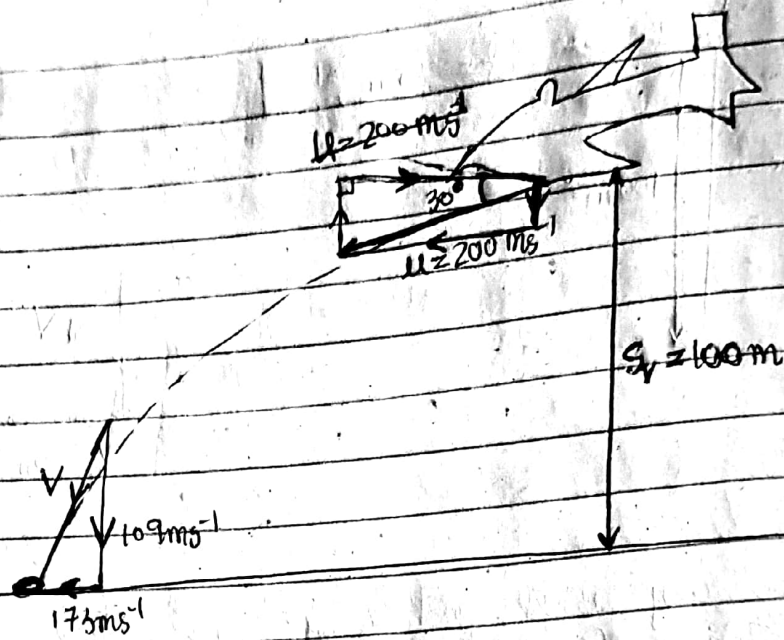 u=200ms⁻¹
30°
u=200ms⁻¹
Sᵥ=100m
V
109ms⁻¹
173ms⁻¹